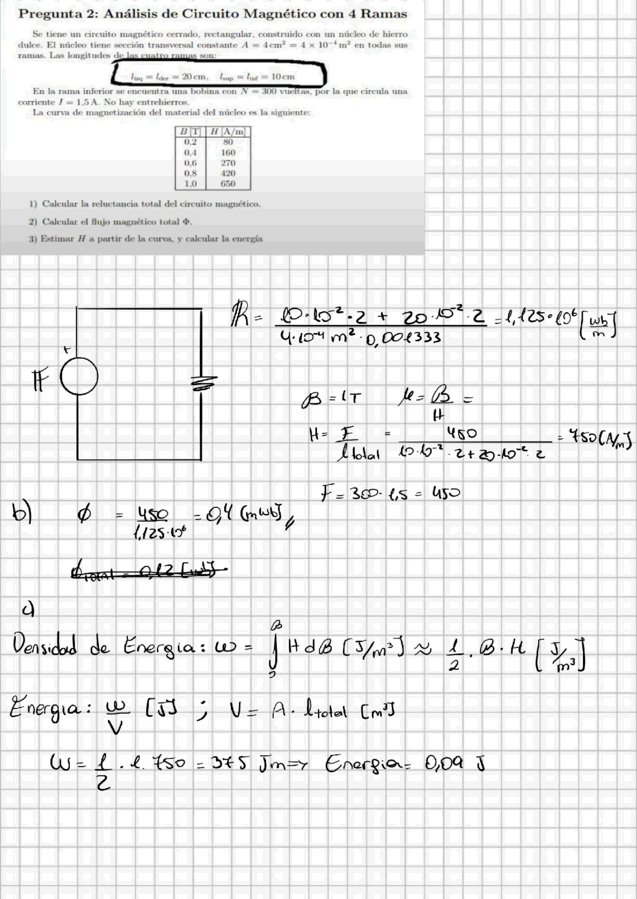 Pregunta 2: Análisis de Circuito Magnético con 4 Ramas
Se tiene un circuito magnético cerrado, rectangular, construido con un núcleo de hierro
dulce. El núcleo tiene sección transversal constante A = 4 cm² = 4 × 10⁻⁴ m² en todas sus
ramas. Las longitudes de las cuatro ramas son:
l_izq = l_der = 20 cm, l_sup = l_inf = 10 cm
En la rama inferior se encuentra una bobina con N = 300 vueltas, por la que circula una
corriente I = 1,5 A. No hay entrehierros.
La curva de magnetización del material del núcleo es la siguiente:
B [T] H [A/m]
0,2 80
0,4 160
0,6 270
0,8 420
1,0 650
1) Calcular la reluctancia total del circuito magnético.
2) Calcular el flujo magnético total Φ.
3) Estimar H a partir de la curva, y calcular la energía
R = (10·10⁻²·2 + 20·10⁻²·2) / (4·10⁻⁴ m²·0,001333) = 1,125·10⁶ [wb/m]
+
F
B = 1T μ = B/H =
H = F/l total = 450 / (10·10⁻²·2+20·10⁻²·2) = 750 [A/m]
F = 300·1,5 = 450
b) ϕ = 450/1,125·10⁶ = 0,4 [mwb]
ϕtotal = 0,12 [wb]
c)
Densidad de Energia: w = ∫ B H dB [J/m³] ≈ 1/2 . B . H [J/m³]
Energia: w/V [J] ; V = A . l total [m³]
W = 1/2 . 1 . 750 = 375 Jm => Energia = 0,09 J